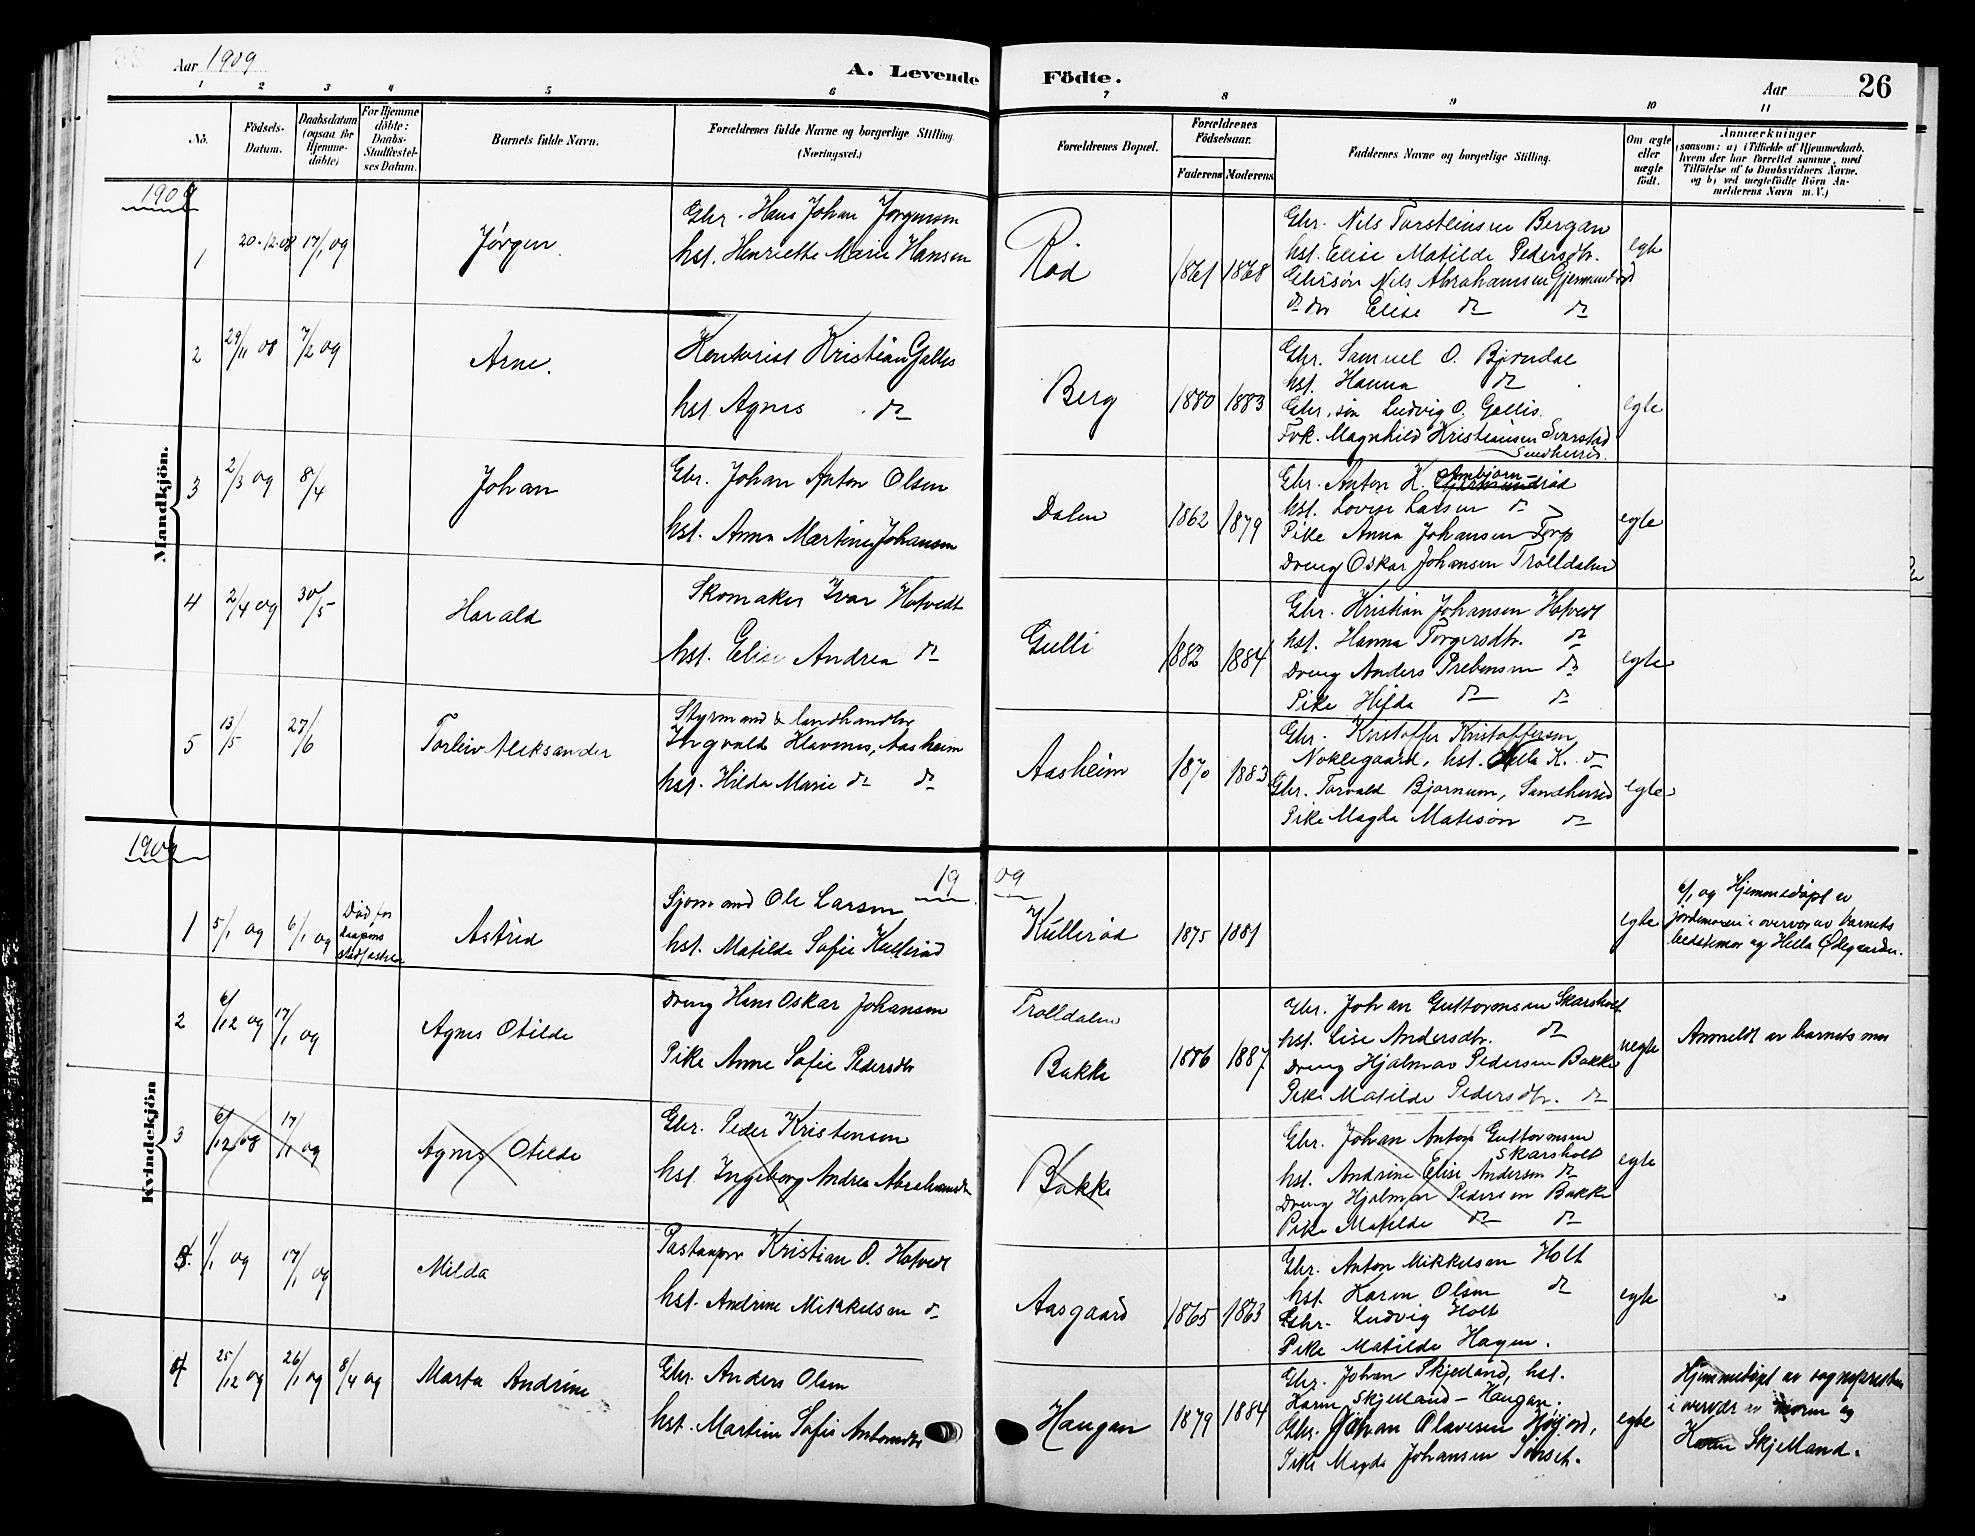 Aar 1909
A. Levende Födte.
Aar
26
1 2 3 4 5 6 7 8 9 10 11
No.
Födsels-Datum.
Daabsdatum (ogsaa för Hjemme-döbte)
For Hjemme döbte: Daabs-Stadfæstel-ses Datum.
Barnets fulde Navn.
Forældrenes fulde Navne og borgerlige Stilling. (Næringsvei.)
Forældrenes Bopæl.
Forældrenes Födselsaar.
Faderens Moderens
Faddernes Navne og borgerlige Stilling.
Om ægte eller uægte födt.
Anmærkninger
(saasom: a) i Tilfælde af Hjemmedaab, hvem der har forrettet samme, med Tilföielse af to Daabsvidners Navne, og b) ved uægtefödte Börn Anmelderens Navn m. V.)
Mandkjön.
1909
1 20-12-08 17/1 09 Jørgen.
Gbr. Hans Johan Jørgensen
hst. Henriette Marie Hansen
Rød 1861 1868
Gbr. Nels Torsteinsen Bergan
hst. Elise Matilde Pedersdtr.
Gbrsøn Nels Abrahamsen Gjermundrød
do dtr Elise do do
egte
2 29/11 08 7/2 09 Arne.
Kontorist Kristian Gallis
hst. Agnes do
Berg 1880 1883
Gbr. Samuel O. Bjørndal
hst. Hanna do
Gbr. søn Ludvig O. Gallis.
Frk. Magnhild Kristiansen Svarstad
Sandherred.
egte
3 2/3 09 8/4 Johan
Gbr. Johan Anton Olsen
hst. Anna Martine Johansen
Dalen 1862 1879
Gbr. Anton K. Ambjørnrød
hst. Lovise Larsen do
Pike Anna Johansen Torp
Dreng Oskar Johansen Trolldalen
egte
4 2/4 09 30/5 Harald
Skomaker Ivar Hotvedt
hst. Elise Andrea do
Gulli 1882 1884
Gbr. Kristian Johansen Hotvedt
hst. Hanna Torgersdtr. do
Dreng Anders Prebensen do
Pike Hilda do do
egte
5 13/5 27/6 Torleiv Aleksander
Styrmand & landhandler
Ingvald Klavenes, Aasheim
hst. Hilda Marie do do
Aasheim 1870 1883
Gbr. Kristoffer Kristoffersen
Noklegaard, hst. Olla K. do
Gbr. Torvald Bjørnum, Sandherred
Pike Magda Matison do
egte
Kvindekjön
1909
1909
1 5/1 09 6/1 09 Død før daapens stadfæstelse Astrid
Sjømand Ole Larsen
hst. Matilde Sofie Kullerød
Kullerød 1875 1881
egte
6/1 09 Hjemmedøpt av
jordmoren i overvær av barnets
bedstemor og Hella Ødegaarden.
2 6/12 09 17/1 09 Agnes Otilde
Dreng Hans Oskar Johansen
Pike Anne Sofie Pedersdtr
Trolldalen
Bakke 1886 1887
Gbr. Johan Guttormsen Skarsholt
hst. Lise Andersdtr. do
Dreng Hjalmar Pedersen Bakke
Pike Matilde Pedersdtr. do
uegte
Anmeldt av barnets mor
3 6/12 08 17/1 09 Agnes Otilde
Gbr. Peder Kristensen
hst. Ingeborg Andrea Abrahamsdtr
Bakke
Gbr. Johan Anton Guttormsen
Skarsholt
hst. Andrine Elise Andersen do
Dreng Hjalmar Pedersen Bakke
Pike Matilde do do
egte
3. 1/1 09 17/1 09 Milda
Kristian O. Hotvedt
hst. Andrine Mikkelsen do
Aasgaard 1865 1863
Gbr. Anton Mikkelsen Holt
hst. Karen Olsen do
Gbr. Ludvig Holt
Pike Matilde Hagen.
egte
4 25/12 09 26/1 09 8/4 09 Marta Andrine
Gbr. Anders Olsen
hst. Martine Sofie Antonsdtr
Haugan 1879 1884
Gbr. Johan Skjelland, hst.
Karen Skjelland - Haugan.
Gbr. Johan Olavesen Høijord,
Pike Magda Johansen
egte
Hjemmedøpt av sognepresten
i overvær av moren og
Karen Skjelland.